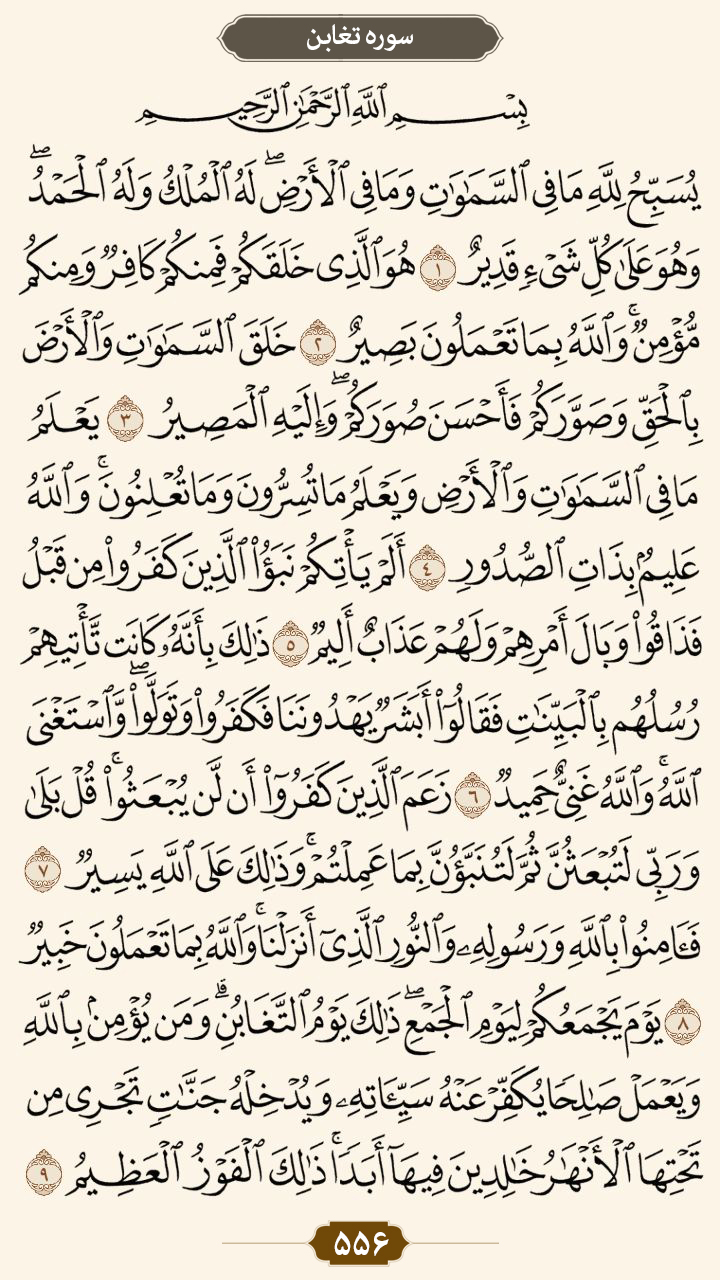 سوره تغابن
بِسْمِ ٱللَّهِ ٱلرَّحْمَٰنِ ٱلرَّحِيمِ
يُسَبِّحُ لِلَّهِ مَا فِى ٱلسَّمَٰوَٰتِ وَمَا فِى ٱلْأَرْضِ ۖ لَهُ ٱلْمُلْكُ وَلَهُ ٱلْحَمْدُ ۖ
وَهُوَ عَلَىٰ كُلِّ شَىْءٍ قَدِيرٌ ١ هُوَ ٱلَّذِى خَلَقَكُمْ فَمِنكُمْ كَافِرٌ وَمِنكُم
مُّؤْمِنٌ ۚ وَٱللَّهُ بِمَا تَعْمَلُونَ بَصِيرٌ ٢ خَلَقَ ٱلسَّمَٰوَٰتِ وَٱلْأَرْضَ
بِٱلْحَقِّ وَصَوَّرَكُمْ فَأَحْسَنَ صُوَرَكُمْ ۖ وَإِلَيْهِ ٱلْمَصِيرُ ٣ يَعْلَمُ
مَا فِى ٱلسَّمَٰوَٰتِ وَٱلْأَرْضِ وَيَعْلَمُ مَا تُسِرُّونَ وَمَا تُعْلِنُونَ ۚ وَٱللَّهُ
عَلِيمٌۢ بِذَاتِ ٱلصُّدُورِ ٤ أَلَمْ يَأْتِكُمْ نَبَؤُا۟ ٱلَّذِينَ كَفَرُوا۟ مِن قَبْلُ
فَذَاقُوا۟ وَبَالَ أَمْرِهِمْ وَلَهُمْ عَذَابٌ أَلِيمٌ ٥ ذَٰلِكَ بِأَنَّهُۥ كَانَت تَّأْتِيهِمْ
رُسُلُهُم بِٱلْبَيِّنَٰتِ فَقَالُوٓا۟ أَبَشَرٌ يَهْدُونَنَا فَكَفَرُوا۟ وَتَوَلَّوا۟ ۖ وَّٱسْتَغْنَى
ٱللَّهُ ۚ وَٱللَّهُ غَنِىٌّ حَمِيدٌ ٦ زَعَمَ ٱلَّذِينَ كَفَرُوٓا۟ أَن لَّن يُبْعَثُوا۟ ۚ قُلْ بَلَىٰ
وَرَبِّى لَتُبْعَثُنَّ ثُمَّ لَتُنَبَّؤُنَّ بِمَا عَمِلْتُمْ ۚ وَذَٰلِكَ عَلَى ٱللَّهِ يَسِيرٌ ٧
فَـَٔامِنُوا۟ بِٱللَّهِ وَرَسُولِهِۦ وَٱلنُّورِ ٱلَّذِىٓ أَنزَلْنَا ۚ وَٱللَّهُ بِمَا تَعْمَلُونَ خَبِيرٌ
٨ يَوْمَ يَجْمَعُكُمْ لِيَوْمِ ٱلْجَمْعِ ۖ ذَٰلِكَ يَوْمُ ٱلتَّغَابُنِ ۗ وَمَن يُؤْمِنۢ بِٱللَّهِ
وَيَعْمَلْ صَٰلِحًا يُكَفِّرْ عَنْهُ سَيِّـَٔاتِهِۦ وَيُدْخِلْهُ جَنَّٰتٍ تَجْرِى مِن
تَحْتِهَا ٱلْأَنْهَٰرُ خَٰلِدِينَ فِيهَآ أَبَدًا ۚ ذَٰلِكَ ٱلْفَوْزُ ٱلْعَظِيمُ ٩
۵۵۶